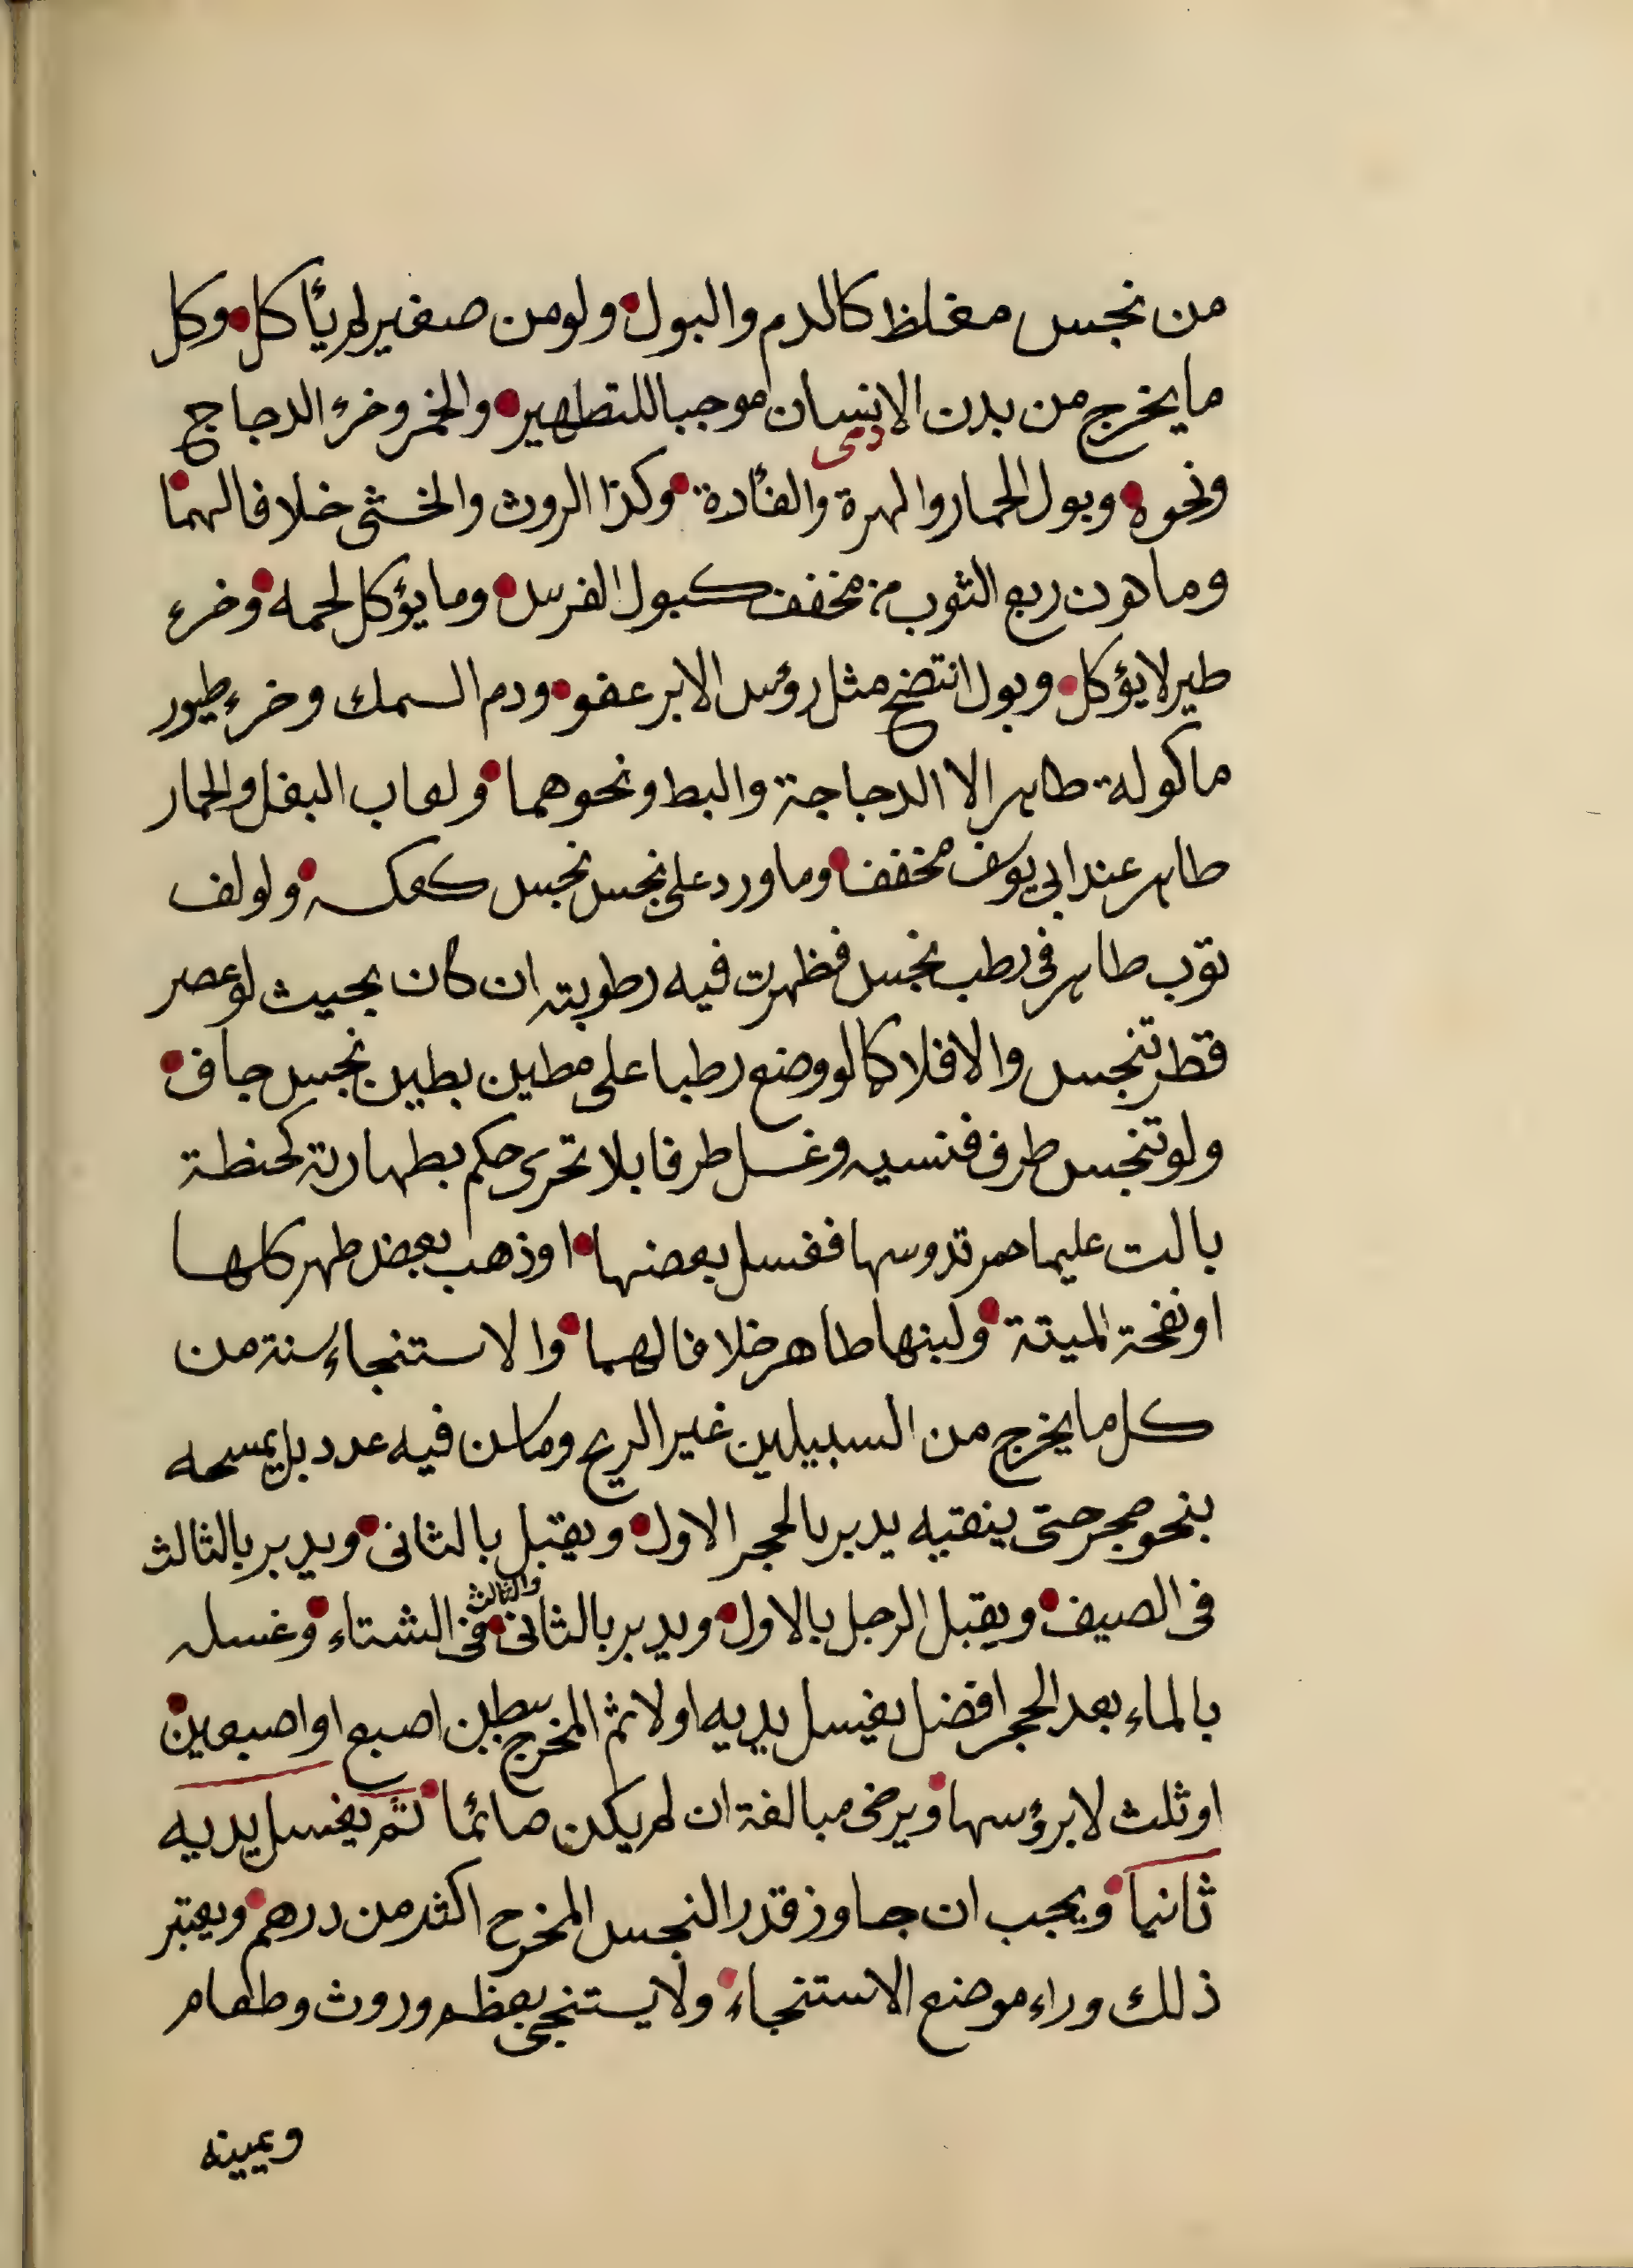 من نجس مغلظ كالدم والبول ولو من صغير لم يأكل وكل
ما يخرج من بدن الانسان موجبا للتطهير والخمر وخرء الدجاج
دمى
ونحوه وبول الحمار والهرة والفأدة وكذا الروث والخثى خلافا لهما
وما دون ربع الثوب من مخفف كبول الفرس وما يؤكل لحمه وخرء
طير لا يؤكل وبول انتضح مثل رؤس الابر عفو ودم السمك وخرء طيور
ماكولة طاهر الا الدجاجة والبط ونحوهما ولعاب البغل والحمار
طاهر عند ابى يوسف مخفف وما ورد على نجس نجس كعكسه ولو لف
ثوب طاهر فى رطب نجس فظهرت فيه رطوبته ان كان بحيث لو عصر
قطر تنجس والا فلا كما لو وضع رطبا على مطين بطين نجس جاف
ولو تنجس طرف فنسيه وغسل طرفا بلا تحرى حكم بطهارته كحنطة
بالت عليها حمر تدوسها فغسل بعضها او ذهب بعض طهر كلها
او نفحة الميتة ولبنها طاهر خلافا لهما والاستنجاء سنة من
كل ما يخرج من السبيلين غير الريح وما سن فيه عدد بل يمسحه
بنحو حجر حتى ينقيه يدبر بالحجر الاول ويقبل بالثانى ويدبر بالثالث
فى الصيف ويقبل الرجل بالاول ويدبر بالثانى والثالث فى الشتاء وغسله
بالماء بعد الحجر افضل يغسل يديه اولا ثم المخرج ببطن اصبع او اصبعين
او ثلث لا برؤسها ويرخى مبالغة ان لم يكن صائما ثم يغسل يديه
ثانيا ويجب ان جاوز قدر النجس المخرج اكثر من درهم ويعتبر
ذلك وراء موضع الاستنجاء ولا يستنجى بعظم وروث وطعام
ويمينه